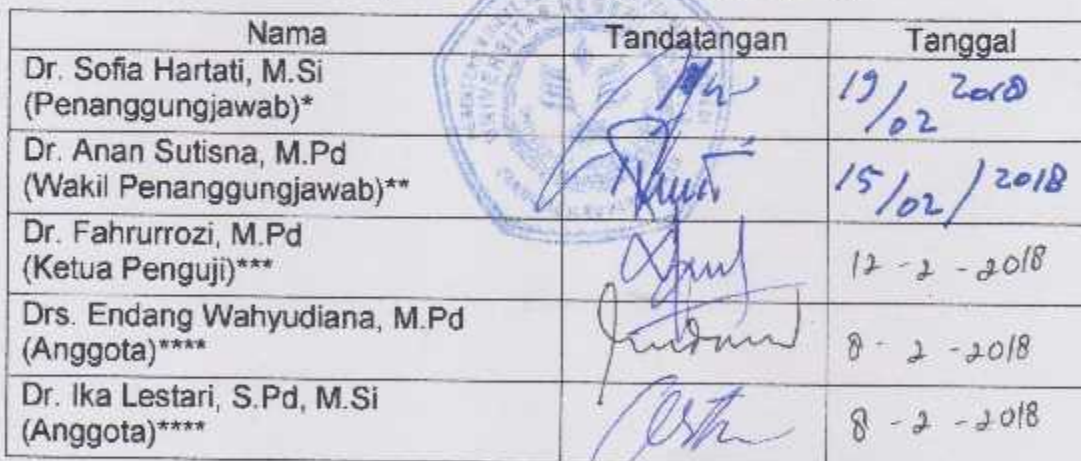 Nama Tandatangan Tanggal
Dr. Sofia Hartati, M.Si
(Penanggungjawab)* 19/02 2018
Dr. Anan Sutisna, M.Pd
(Wakil Penanggungjawab)** 15/02/2018
Dr. Fahrurrozi, M.Pd
(Ketua Penguji)*** 12-2-2018
Drs. Endang Wahyudiana, M.Pd
(Anggota)**** 8-2-2018
Dr. Ika Lestari, S.Pd, M.Si
(Anggota)**** 8-2-2018